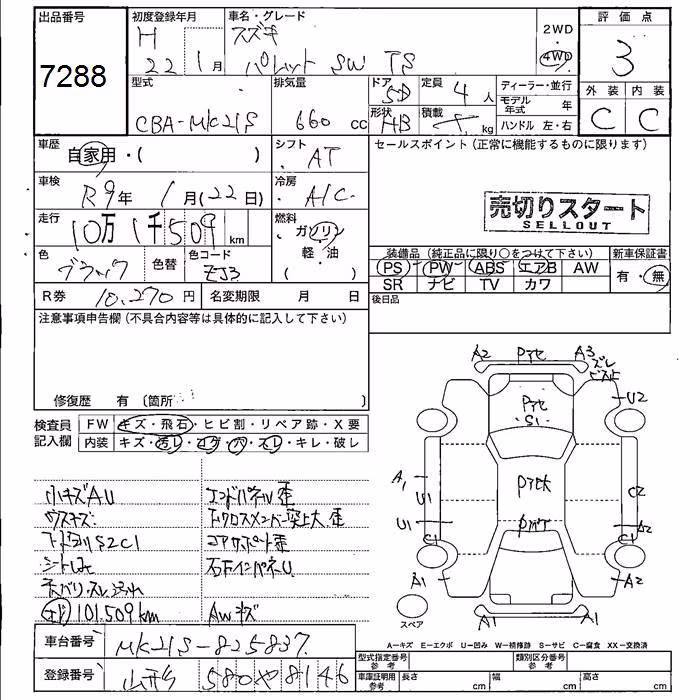 出品番号
7288
初度登録年月
H
22年1月
車名・グレード
スズキ
パレット SW TS
2WD
4WD
評価点
3
外装 内装
C C
型式
CBA-MK21S
排気量
660 cc
ドア
5D
形状
HB
定員
4人
積載
kg
ディーラー・並行
モデル年式 年
ハンドル 左・右
車歴
自家用・( )
シフト
・AT
セールスポイント(正常に機能するものに限ります)
車検
R9年 1月(22日)
冷房
・A/C
売切りスタート
SELLOUT
走行
10万1千509km
燃料
・ガソリン
軽・油
( )
色
ブラック
色替
色コード
ZJ3
装備品(純正品に限り○をつけて下さい)
PS PW ABS エアB AW
SR ナビ TV カワ
新車保証書
有・無
R券 10,270円
名変期限 月 日
後日品
注意事項申告欄(不具合内容等は具体的に記入して下さい)
修復歴 有〔箇所 〕
検査員記入欄
FW キズ・飛石・ヒビ割・リペア跡・X要
内装 キズ・汚レ・コゲ・穴・スレ・キレ・破レ
小キズAU
ウスキズ
シートしみ
オド 101,509km
エンドパネル歪
下クロスメンバー突上大、歪
コアサポート歪
右下インパネU
AWキズ
A2 A3 ズレ
S1
U2
A1 U1
C2
U1 C1 C1 A2
A1 A2
A1 A1
スペア
A-キズ E-エクボ U-凹み W-補修跡 S-サビ C-腐食 XX-交換済
車台番号 MK21S-825837
登録番号 山形 580 や 8146
型式指定番号 参考
類別区分番号 参考
車庫証明用 参考
長さ cm 幅 cm 高さ cm